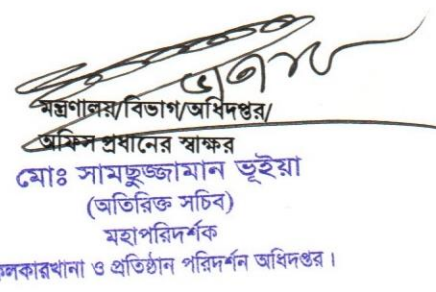 মন্ত্রণালয়/বিভাগ/অধিদপ্তর/
অফিস প্রধানের স্বাক্ষর
মোঃ সামছুজ্জামান ভূইয়া
(অতিরিক্ত সচিব)
মহাপরিদর্শক
কলকারখানা ও প্রতিষ্ঠান পরিদর্শন অধিদপ্তর।